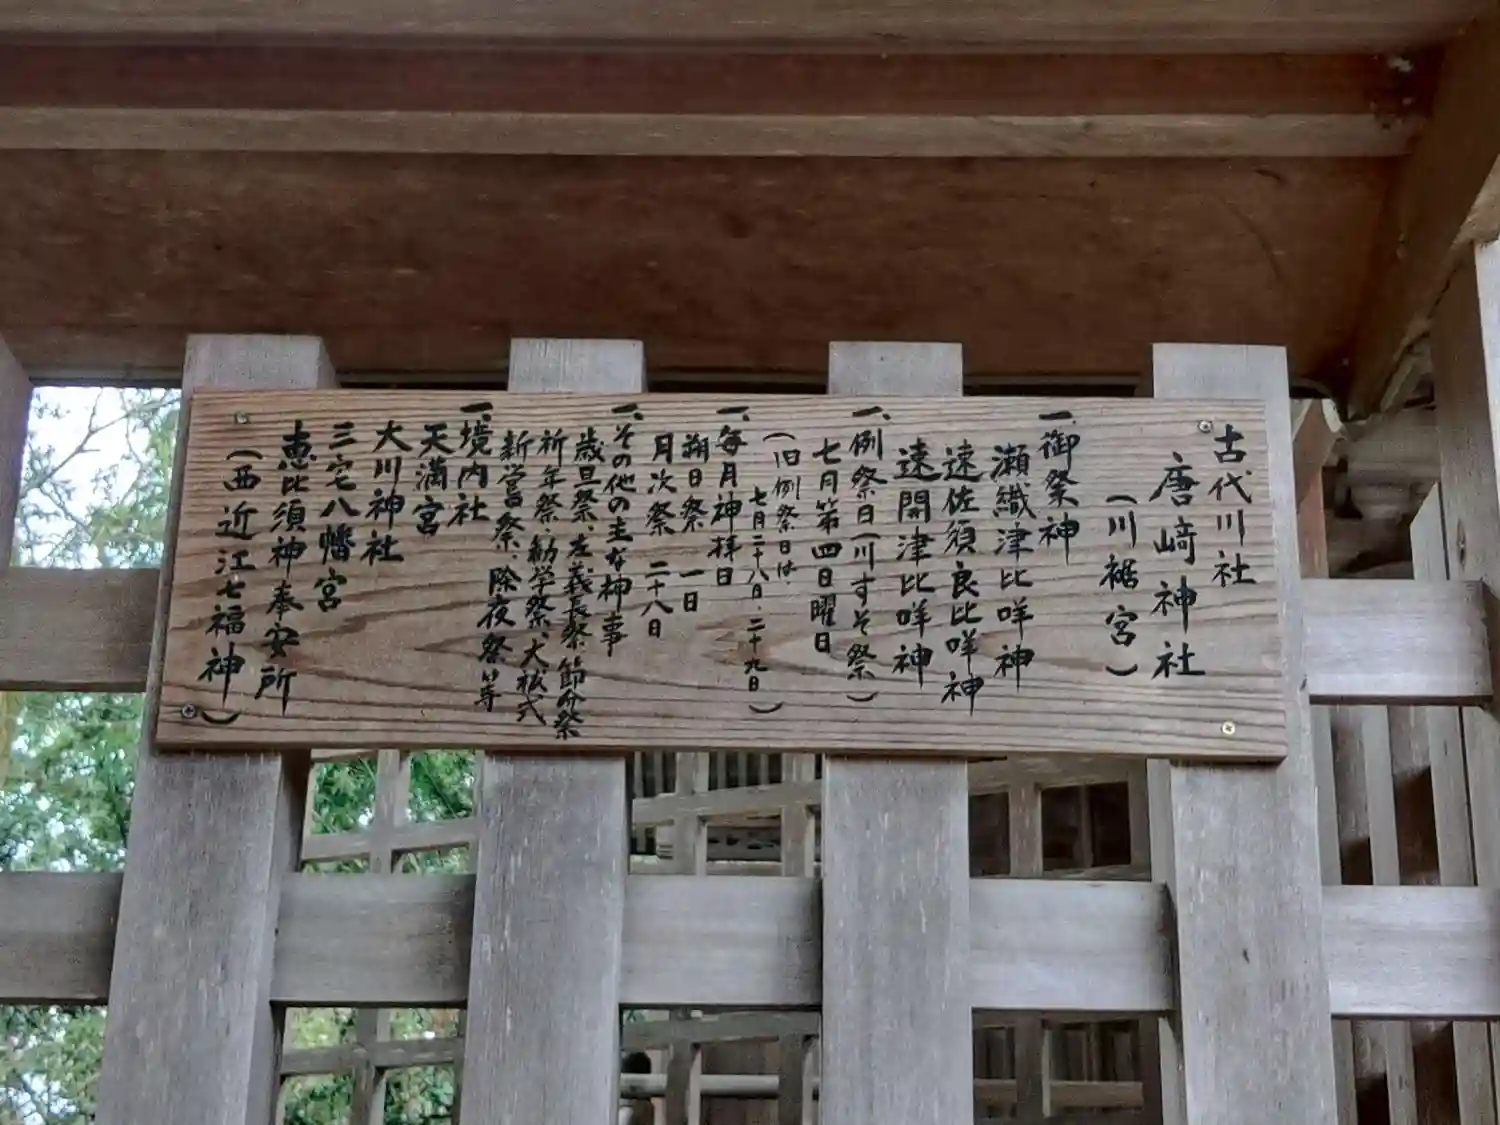 古代川社
唐﨑神社
(川裾宮)
一、御祭神
瀬織津比咩神
速佐須良比咩神
速開津比咩神
一、例祭日(川すそ祭)
七月第四日曜日
(旧例祭日は
七月二十八日、二十九日)
一、毎月神拝日
朔日祭 一日
月次祭 二十八日
一、その他の主な神事
歳旦祭、左義長祭、節分祭
祈年祭、勧学祭、大祓式
新嘗祭、除夜祭等
一、境内社
天満宮
大川神社
三宅八幡宮
恵比須神奉安所
(西近江七福神)